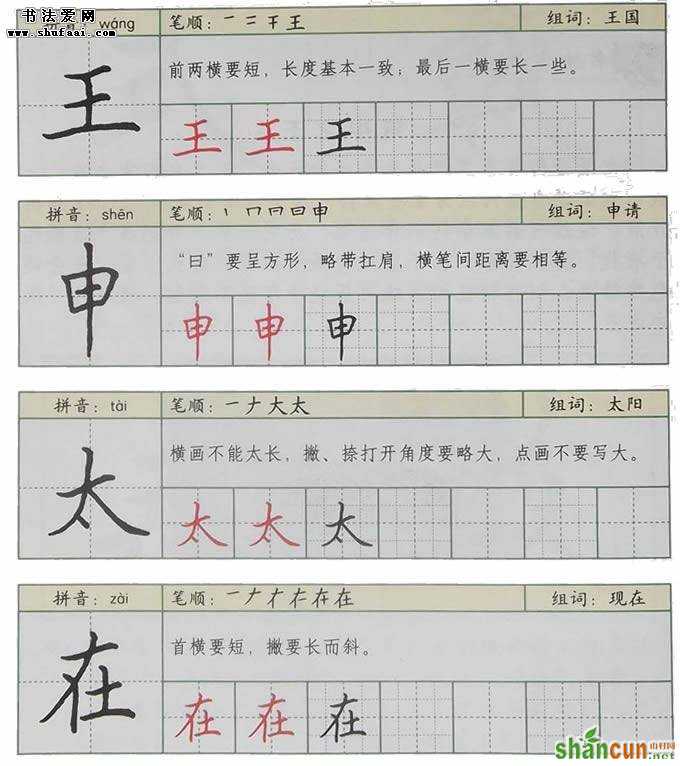 书法爱网
www.shufaai.com
拼音：wáng 笔顺：一 二 干 王 组词：王国
王
前两横要短，长度基本一致；最后一横要长一些。
王 王 王
拼音：shēn 笔顺：丨 冂 曰 申 组词：申请
申
“曰”要呈方形，略带扛肩，横笔间距离要相等。
申 申 申
拼音：tài 笔顺：一 ナ 大 太 组词：太阳
太
横画不能太长，撇、捺打开角度要略大，点画不要写大。
太 太 太
拼音：zài 笔顺：一 ナ 在 组词：现在
在
首横要短，撇要长而斜。
在 在 在
shancun 山村网
.net